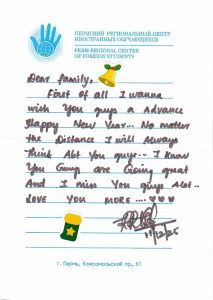 ПЕРМСКИЙ РЕГИОНАЛЬНЫЙ ЦЕНТР
ИНОСТРАННЫХ ОБУЧАЮЩИХСЯ
PERM REGIONAL CENTER
OF FOREIGN STUDENTS
Dear family,
First of all I wanna
wish You guys a Advance
Happy New Year... No matter
the Distance I will Always
Think Abt You guys... I know
You Guys are Going great
And I miss You guys Alot..
LOVE YOU MORE ....
11/12/25
г. Пермь, Комсомольский пр., 61